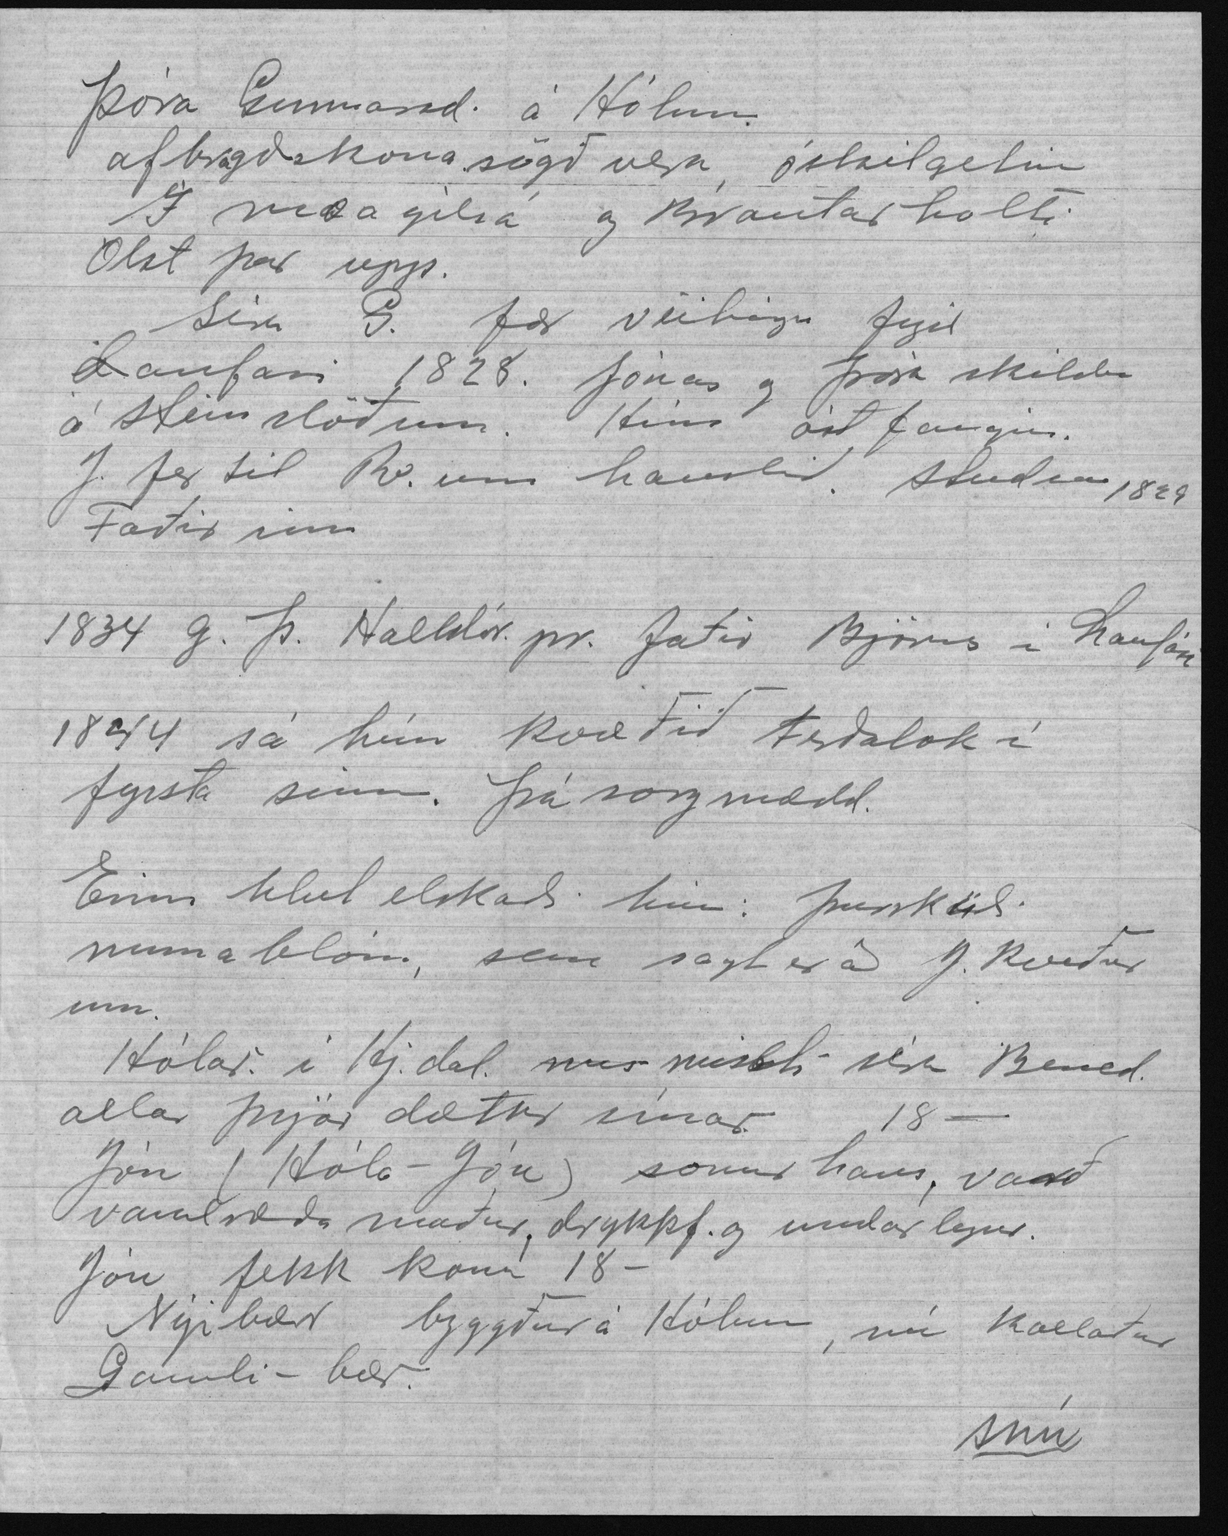 Þóra Gunnarsd. á Hólum.
afbragðskona sögð vera, óskilgetin
Í og Brautarholti
Ólst þar upp.
Síra G. fær veitingu fyrir
Laufási 1828. Jónas og Þóra skildu
á Steinsstöðum. Hún ást fangin.
J. fer til Rv. um haustið. Student 1829
Faðir inn
1834 g. Þ. Halldór. pr. faðir Björns í Laufási
1844 sá hún kvæðið Ferðalok í
fyrsta sinn. Þá sorgmædd.
Einn elskaði hún:
numa blóm, sem sagt er að J. kveður
um.
Hólar. í Hj.dal. misti síra Bened.
allar þrjár dætur sínar 18 —
Jón (Hóla-Jón) sonur hans, varð
vandræða maður, drykkf. og undarlegur.
Jón fekk konu 18 –
Nýibær byggður á Hólum, nú kallaður
Gamli-bær.
snú